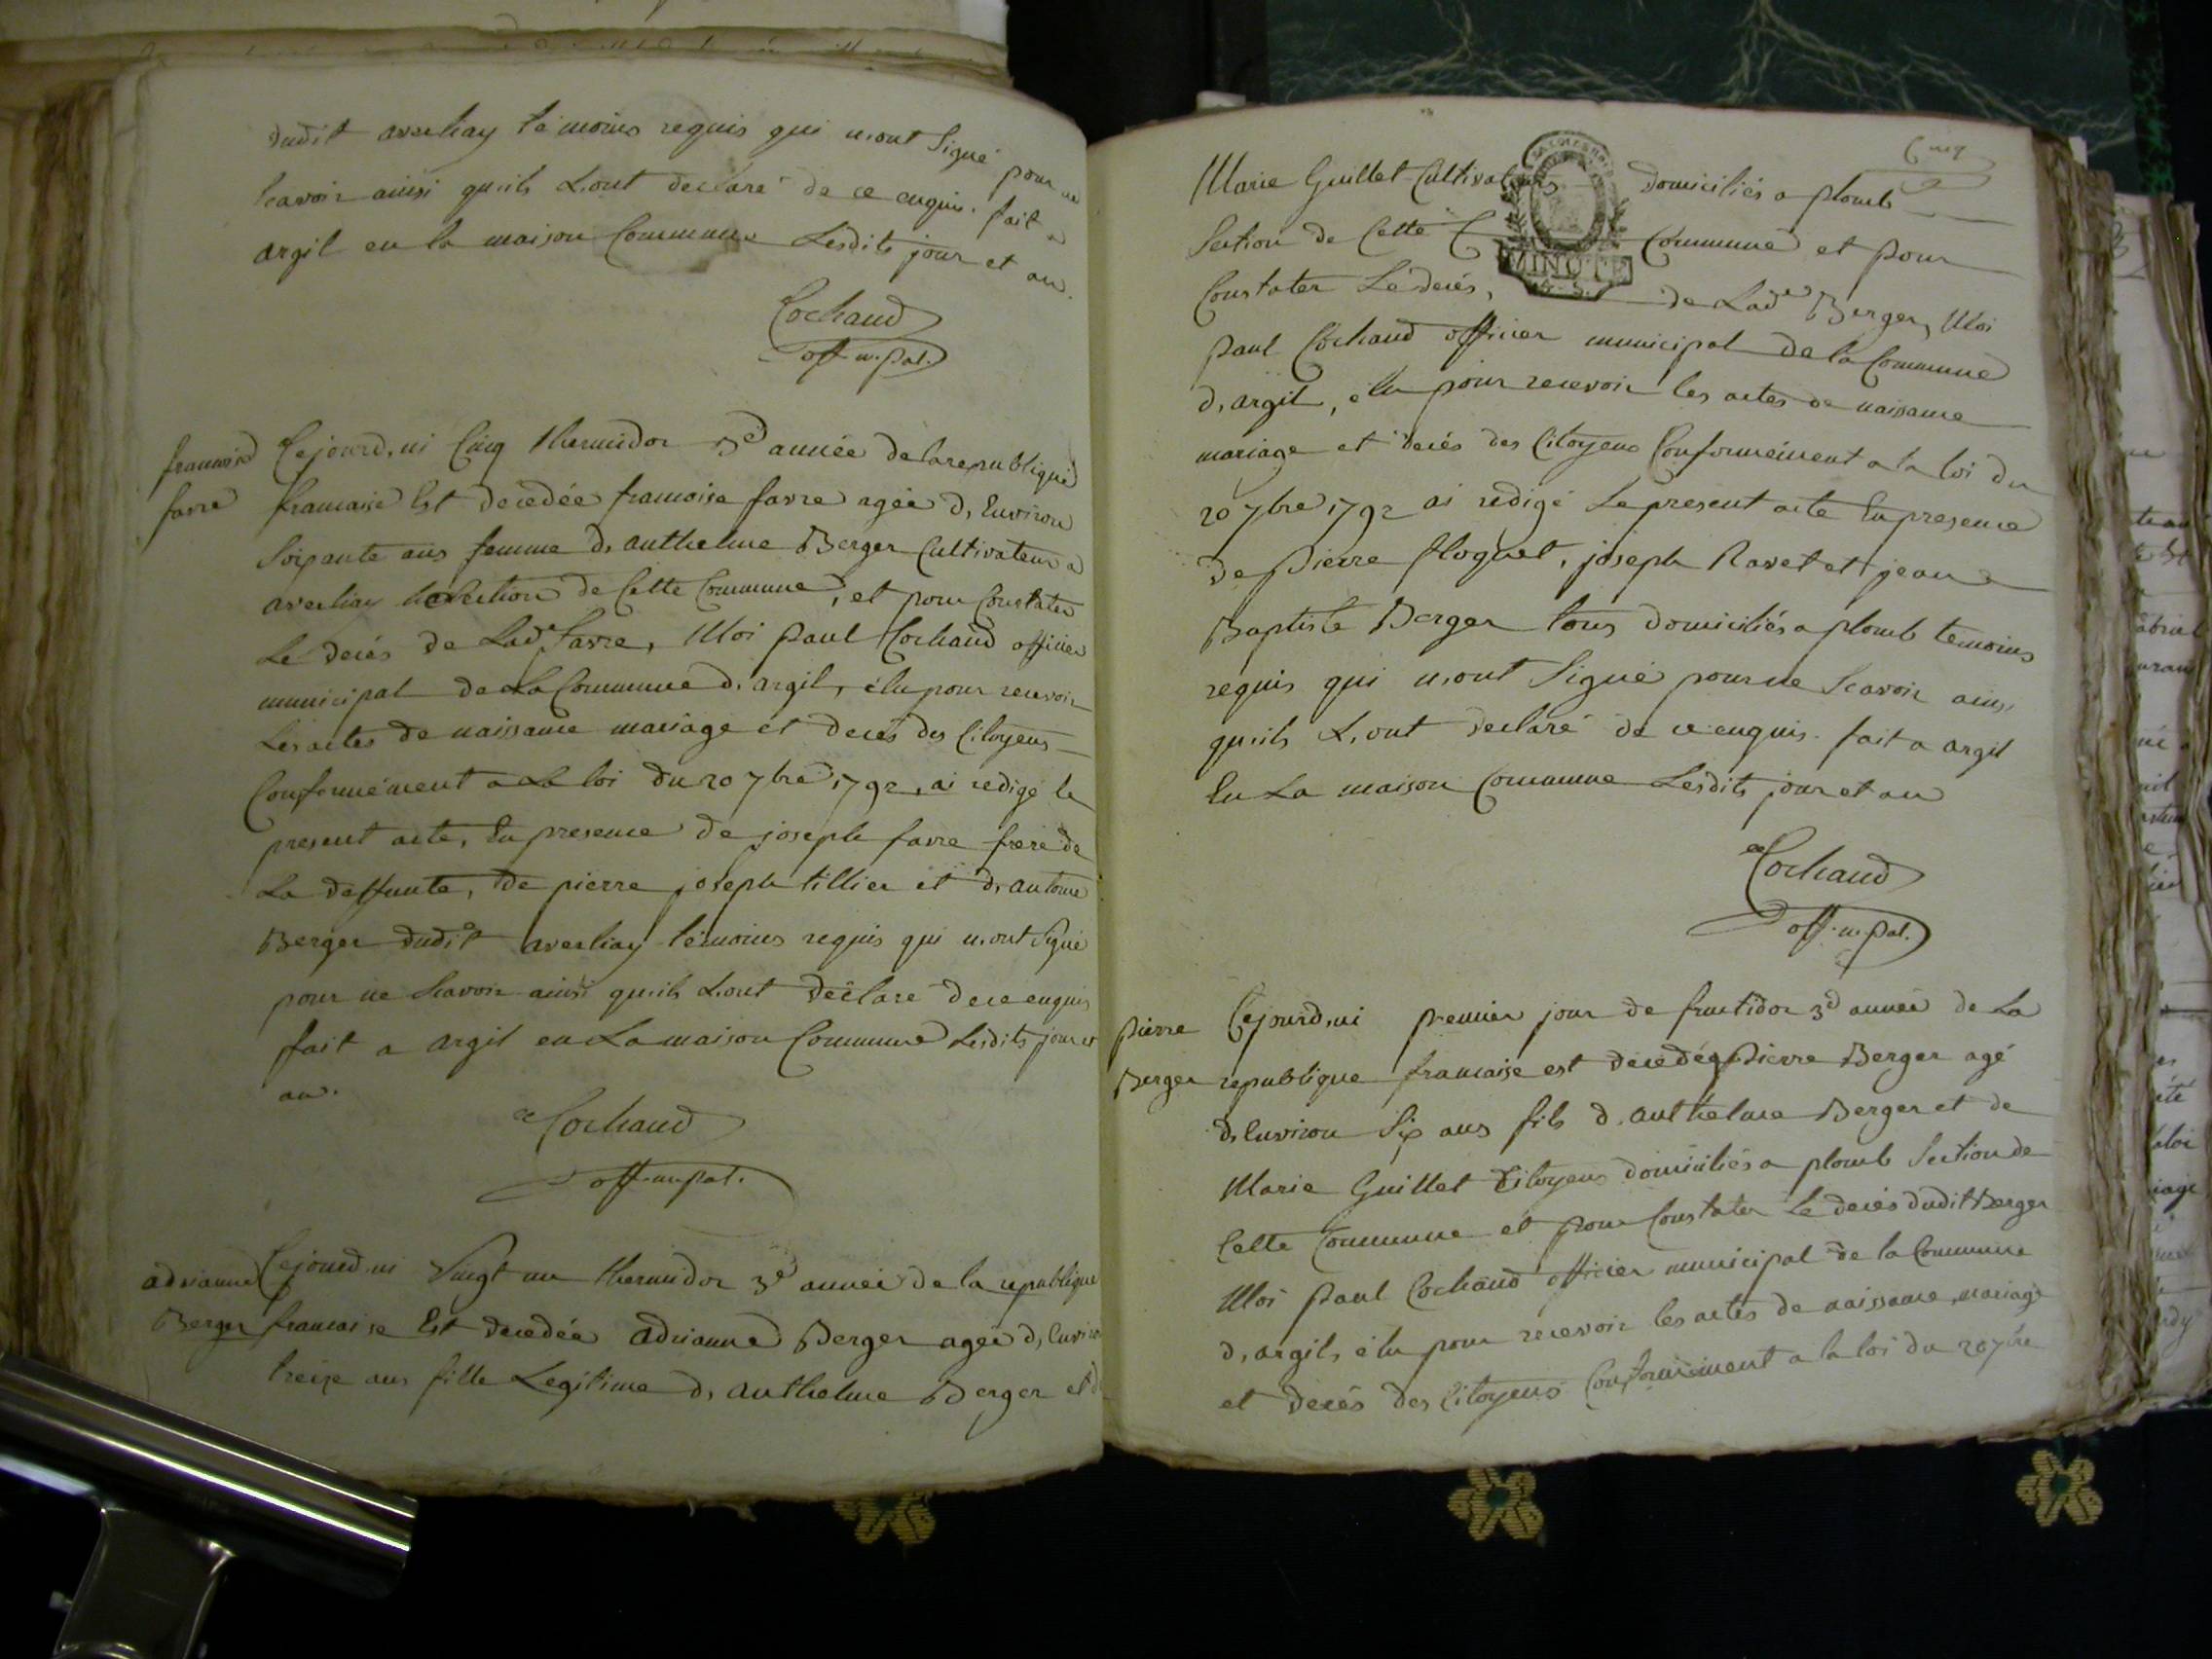 dudit averliay témoins requis qui n,ont Signé pour ne
scavoir ainsi qu,ils L,ont declaré de ce enquis. fait a
argil en la maison Commune Lesdits jour et an.
Cochaud
off. m.pal.
francoise
favre
Cejourd,ui Cinq thermidor 3e année de la republique
francaise Est decedée francoise favre agée d, Environ
Soixante ans femme d, anthelme Berger Cultivateur a
averliay Section de Cette Commune, et pour Constater
Le decés de Lade favre, Moi paul Cochaud officier
municipal de La Commune d, argil, élu pour recevoir
Les actes de naissance mariage et decés des Citoyens
Conformément a La loi du 20 7bre 1792, ai redigé le
present acte, En presence de joseph favre frere de
La deffunte, de pierre joseph tillier et d, antoine
Berger dudit averliay témoins requis qui n,ont Signé
pour ne scavoir ainsi qu,ils L,ont déclaré de ce enquis
fait a argil en La maison Commune Lesdits jour et
an.
Cochaud
off. m.pal.
adrianne
Berger
Cejourd,ui Vingt un thermidor 3e année de la republique
francaise Est decedée adrianne Berger agée d, Environ
treize ans fille Legitime d, anthelme Berger et de
Cinq
Marie Guillet Cultivateurs domiciliés a plomb
Section de Cette Commune et pour
MINUTE
Constater Le decés, de Lade Berger, Moi
paul Cochaud officier municipal de la Commune
d, argil, élu pour recevoir les actes de naissance
mariage et decés des Citoyens Conformément a la loi du
20 7bre 1792 ai redigé Le present acte En presence
de pierre floquet, joseph Ravet et jean
Baptiste Berger tous domiciliés a plomb temoins
requis qui n,ont Signé pour ne Scavoir ainsi
qu,ils L,ont declaré de ce enquis. fait a argil
En La maison Commune Lesdits jour et an
Cochaud
off. m.pal.
pierre
Berger
Cejourd,ui premier jour de fructidor 3e année de La
republique francaise est decedé pierre Berger agé
d, Environ Six ans fils d, anthelme Berger et de
Marie Guillet Citoyens domiciliés a plomb Section de
Cette Commune et pour Constater Le decés dudit Berger
Moi paul Cochaud officier municipal de la Commune
d, argil, élu pour recevoir les actes de naissance, mariage
et decés des Citoyens Conformément a la loi du 20 7bre